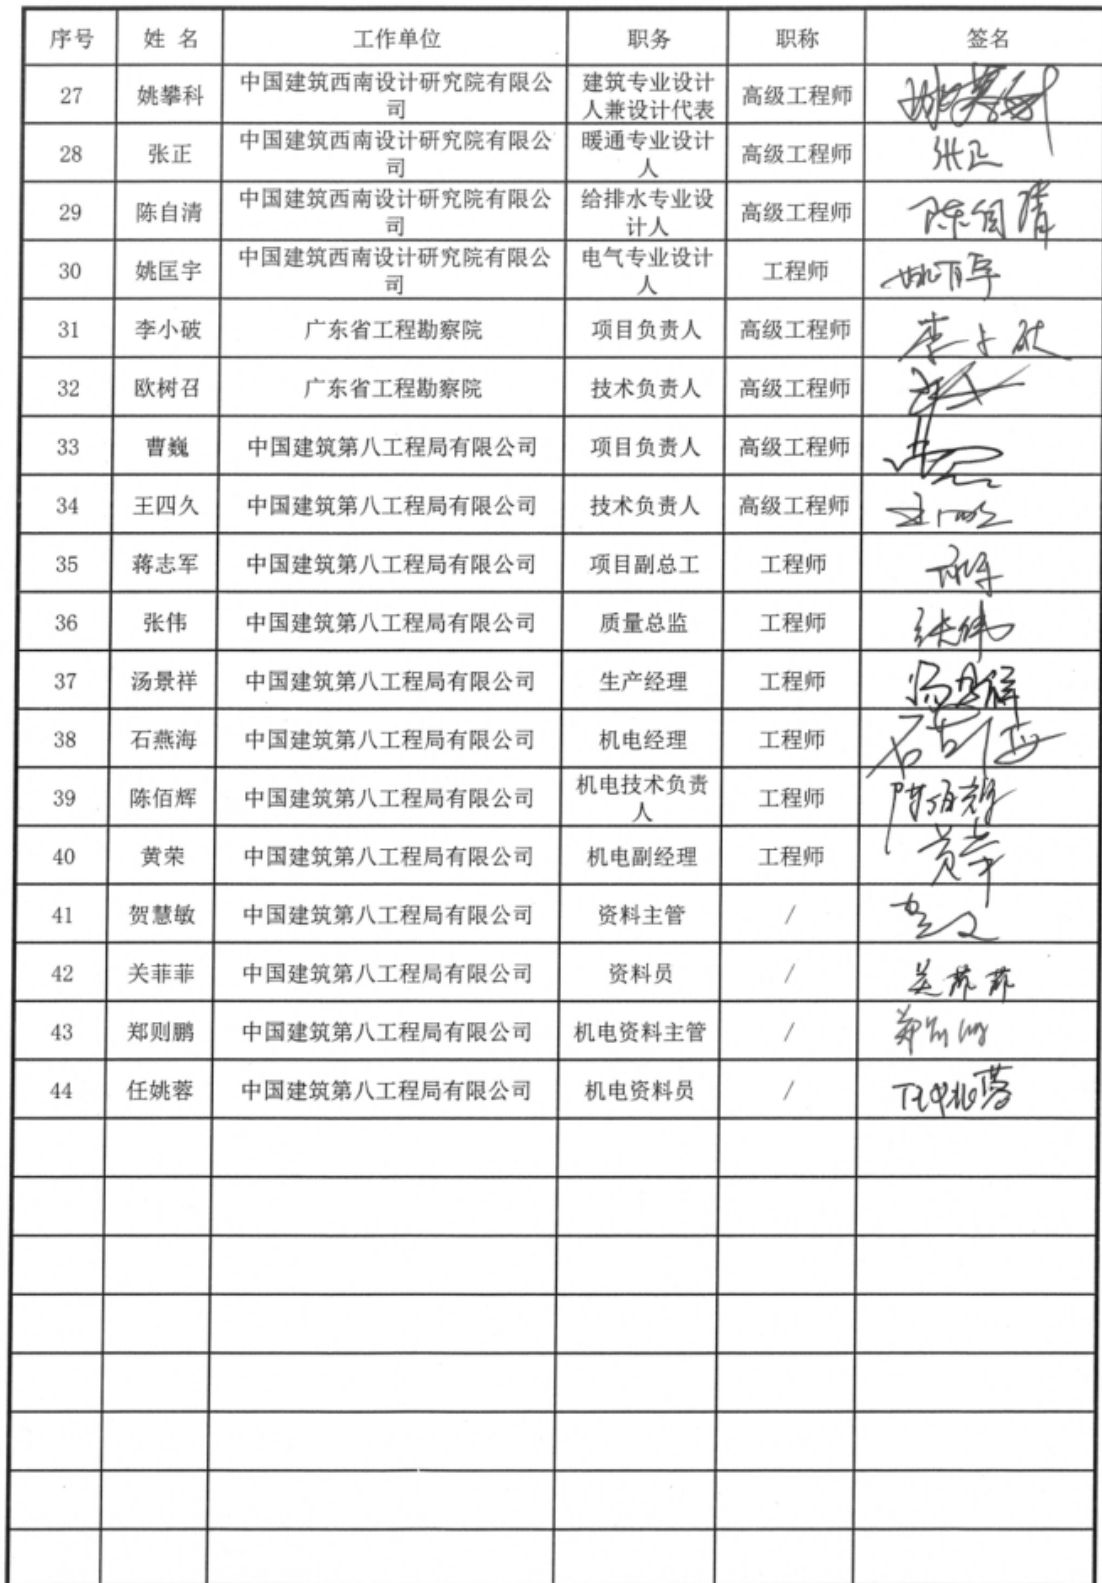 序号 姓 名 工作单位 职务 职称 签名
27 姚攀科 中国建筑西南设计研究院有限公 建筑专业设计 高级工程师
司 人兼设计代表
28 张正 中国建筑西南设计研究院有限公 暖通专业设计 高级工程师 张正
司 人
29 陈自清 中国建筑西南设计研究院有限公 给排水专业设 高级工程师
司 计人
30 姚匡宇 中国建筑西南设计研究院有限公 电气专业设计 工程师
司 人
31 李小破 广东省工程勘察院 项目负责人 高级工程师 李小破
32 欧树召 广东省工程勘察院 技术负责人 高级工程师
33 曹巍 中国建筑第八工程局有限公司 项目负责人 高级工程师
34 王四久 中国建筑第八工程局有限公司 技术负责人 高级工程师
35 蒋志军 中国建筑第八工程局有限公司 项目副总工 工程师
36 张伟 中国建筑第八工程局有限公司 质量总监 工程师 张伟
37 汤景祥 中国建筑第八工程局有限公司 生产经理 工程师 汤景祥
38 石燕海 中国建筑第八工程局有限公司 机电经理 工程师
39 陈佰辉 中国建筑第八工程局有限公司 机电技术负责 工程师 陈佰辉
人
40 黄荣 中国建筑第八工程局有限公司 机电副经理 工程师 黄荣
41 贺慧敏 中国建筑第八工程局有限公司 资料主管 /
42 关菲菲 中国建筑第八工程局有限公司 资料员 / 关菲菲
43 郑则鹏 中国建筑第八工程局有限公司 机电资料主管 / 郑则鹏
44 任姚蓉 中国建筑第八工程局有限公司 机电资料员 / 任姚蓉